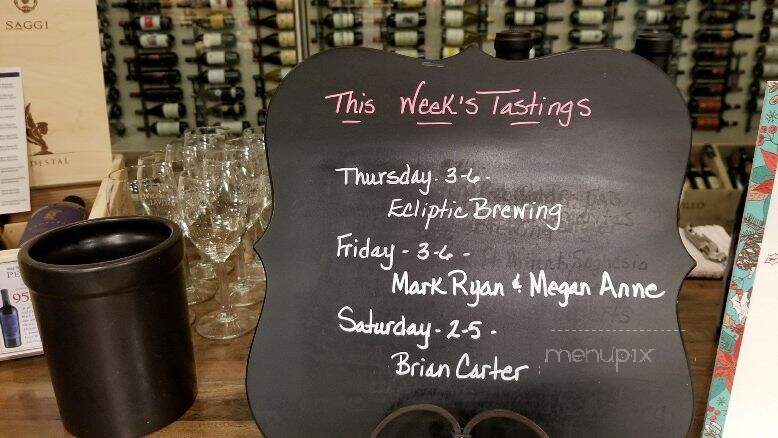 SAGGI
DESTAL
95
This Week's Tastings
Thursday - 3-6 -
Ecliptic Brewing
Friday - 3-6 -
Mark Ryan & Megan Anne
Saturday - 2-5 -
Brian Carter
menupix